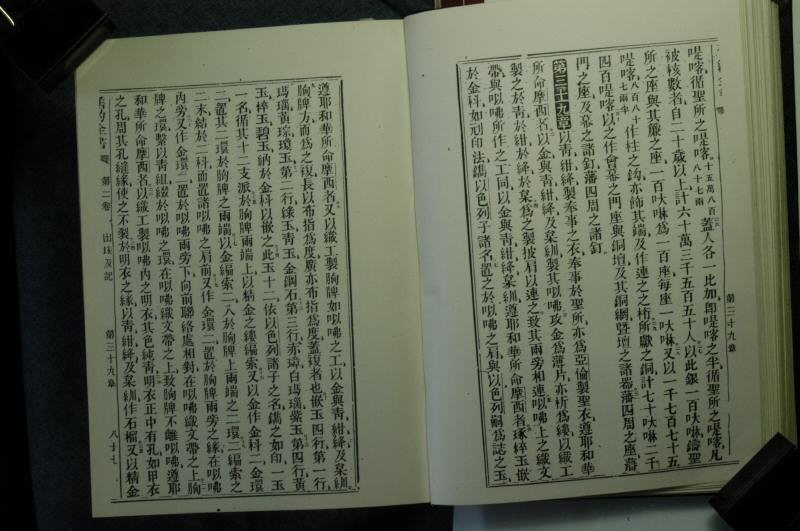 是喀循聖所之是喀十五萬八百八十七兩蓋人各一比加卽是喀之半循聖所之是喀凡
被核數者自二十歲以上計六十萬三千五百五十人以此銀一百大啉鑄聖
所之座與其簾之座一百大啉爲一百座每座一大啉又以一千七百七十五
是喀八百八十七兩半作柱之鈎亦飾其端及作連之之桁所獻之銅計七十大啉二千
四百是喀以之作會幕之門座與銅壇及其銅網曁壇之諸器藩四周之座藩
門之座及幕之諸釘藩四周之諸釘
第三十九章 以靑紺絳製奉事之衣奉事於聖所亦爲亞倫製聖衣遵耶和華
所命摩西者以金與靑紺絳及枲紃製其以咈攻金爲薄片亦析爲縷以織工
製之於靑於紺於絳於枲爲之製披肩以連之致其兩旁相連以咈上之織文
帶與以咈所作之工同以金與靑紺絳枲紃遵耶和華所命摩西者琢梓玉嵌
於金枓如刓印法鐫以色列子諸名置之於以咈之肩與以色列嗣爲誌之玉
第三十九章
遵耶和華所命摩西者又以織工製胸牌如以咈之工以金與靑紺絳及枲紃
胸牌方而爲之複長以布指爲度廣亦布指爲度蓋複者也嵌玉四行第一行
瑪瑙黃琮瓊玉第二行綠玉靑玉金鋼石第三行赤瑋白瑪瑙紫玉第四行黃
玉梓玉碧玉納於金枓以嵌之此玉十二依以色列諸子之名鐫之如印一玉
一名循其十二支派於胸牌兩端上以精金之縷編索又以金作金枓二金環
二置其二環於胸牌之兩端以金編索二入於胸牌上兩端之二環二編索之
二末結於二枓而置諸以咈之肩前又作金環二置於胸牌兩旁之緣在以咈
內旁又作金環二置於以咈兩旁下向前聯絡處相對在以咈織文帶之上胸
牌之環繫以靑組綴於以咈之環在以咈織文帶之上致胸牌不離以咈遵耶
和華所命摩西者以織工製以咈內之明衣其色純靑明衣正中有孔如甲衣
之孔周其孔縫緣使之不裂於明衣之緣以靑紺絳及枲紃作石榴又以精金
舊約全書 第二卷 出埃及記 第三十九章 八十七